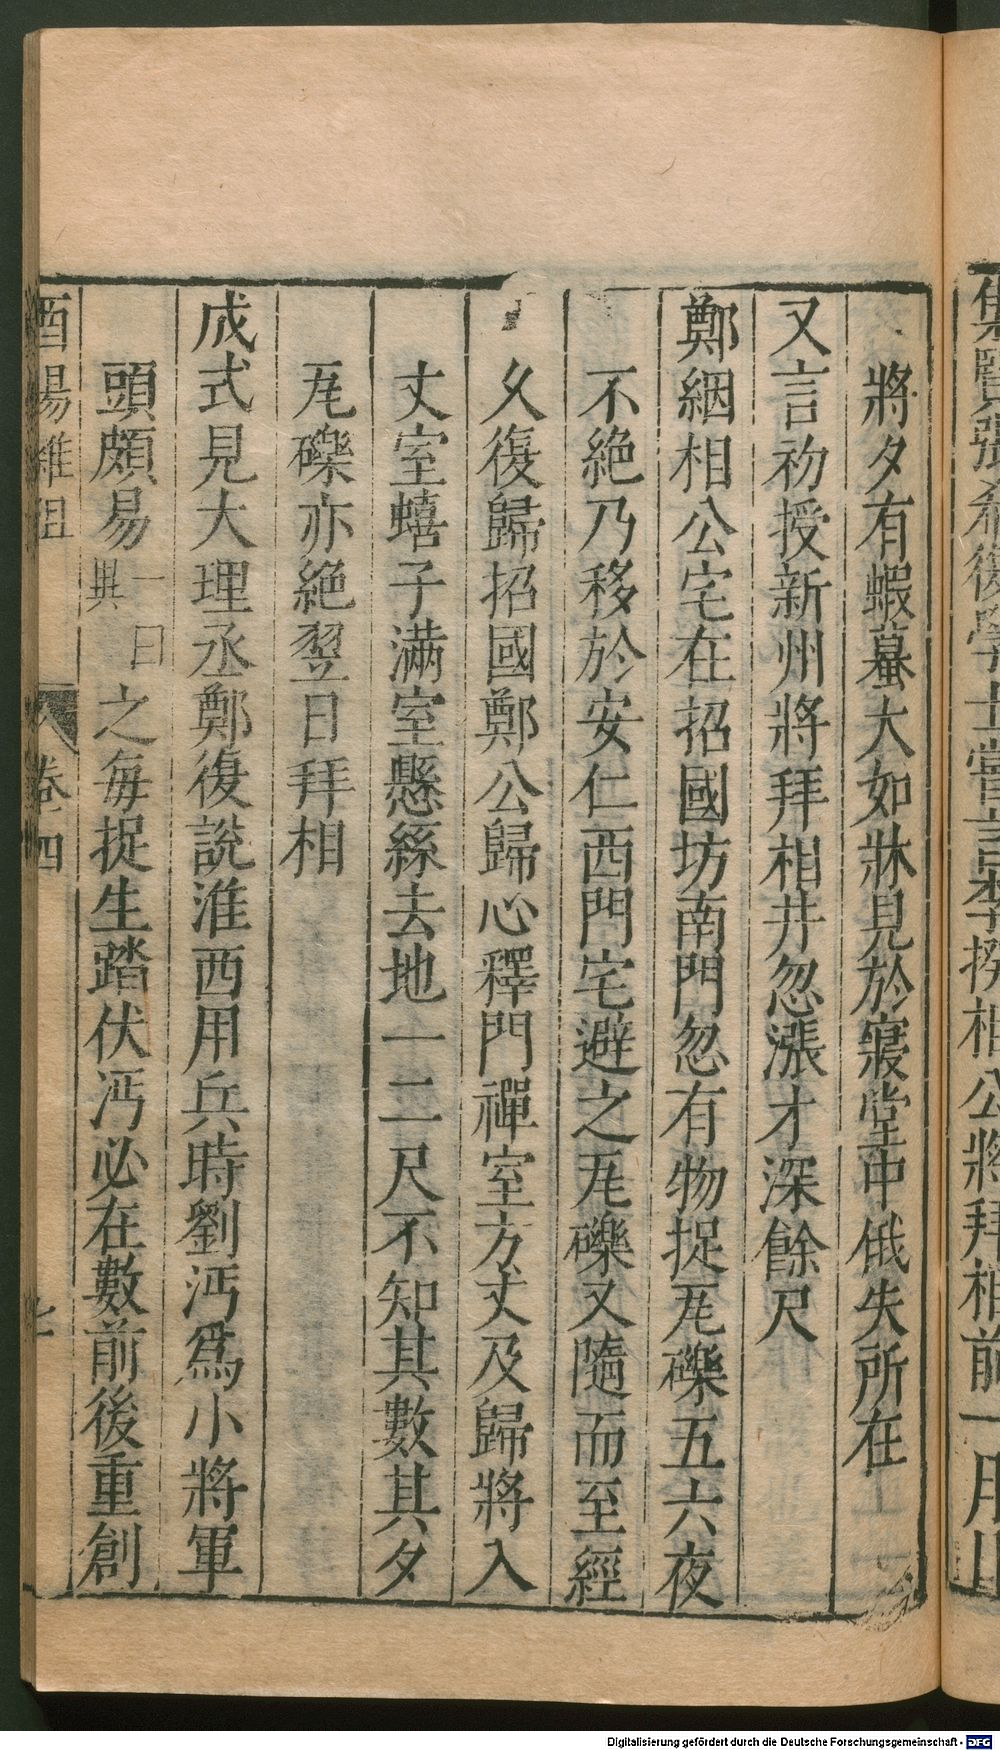 集賢張希復學士嘗言李揆相公將拜相前一月
將夕有蝦蟇大如牀見於寢堂中俄失所在
又言初授新州將拜相井忽漲才深餘尺
鄭絪相公宅在招國坊南門忽有物捉瓦礫五六夜
不絕乃移於安仁西門宅避之瓦礫又隨而至經
久復歸招國鄭公歸心釋門禪室方丈及歸將入
丈室蟢子滿室懸絲去地一二尺不知其數其夕
瓦礫亦絕翌日拜相
成式見大理丞鄭復說淮西用兵時劉沔爲小將軍
頭頗易一曰異之每捉生踏伏沔必在數前後重創
酉陽雜俎 卷四 七
Digitalisierung gefördert durch die Deutsche Forschungsgemeinschaft - DFG